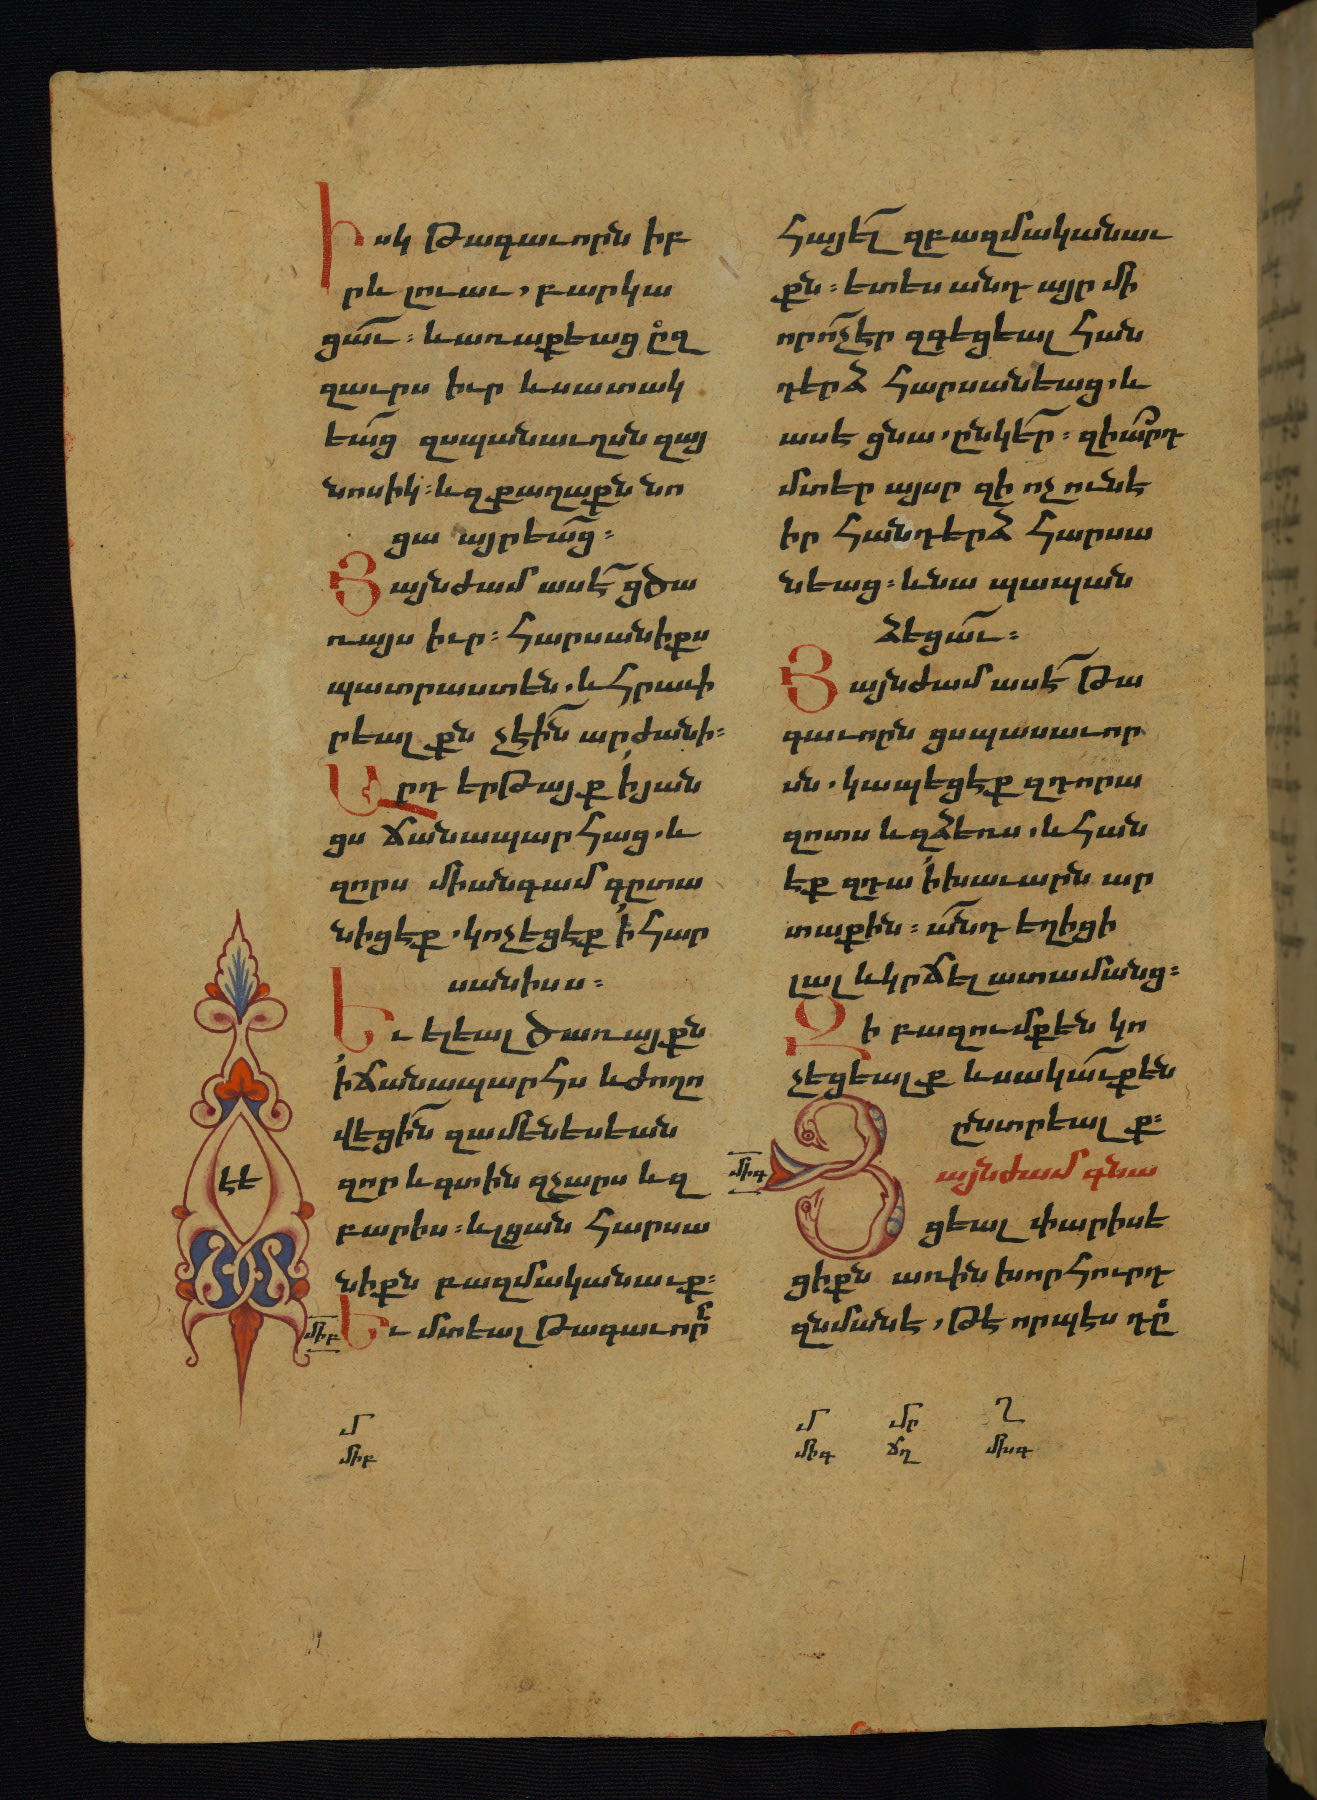 Իսկ թագաւորն իբ
րև լուաւ, բարկա
ցաւ։ և առաքեաց ըզ
զաւրս իւր և սատակ
եաց զսպանաւղսն զայ
նոսիկ։ և զքաղաքն նո
ցա այրեաց։
Յայնժամ ասէ ցծա
ռայս իւր։ հարսանիքս
պատրաստեն, և հրաւի
րեալքն չէին արժանի։
Արդ երթայք ի յան
ցս ճանապարհաց, և
զորս միանգամ գըտա
նիցեք, կոչեցեք ի հար
սանիսս։
Եւ ելեալ ծառայքն
ի ճանապարհս և ժողո
վեցին զամենեսեան
զոր և գտին զչարս և զ
բարիս։ և լցան հարսա
նիքն բազմականաւք։
Եւ մտեալ թագաւորն
էե
միբ
մ
միբ
հայել զբազմականաւ
քն։ ետես անդ այր մի
որ ոչ էր զգեցեալ հան
դերձ հարսանեաց, և
ասէ ցնա, ընկեր։ զիարդ
մտեր այսր զի ոչ ունէ
իր հանդերձ հարսա
նեաց։ և նա պապան
ձեցաւ։
Յայնժամ ասէ թա
գաւորն ցսպասաւոր
սն, կապեցէք զդորա
զոտս և զձեռս, և հան
էք զդա ի խաւարն ար
տաքին։ անդ եղիցի
լալ և կրճել ատամանց։
Զի բազումք են կո
չեցեալք և սակաւք են
ընտրեալք։
միգ
Յայնժամ գնա
ցեալ փարիսե
ցիքն առին խորհուրդ
զնմանէ, թէ որպէս դը
մ մր ղ
միգ ճղ միսգ